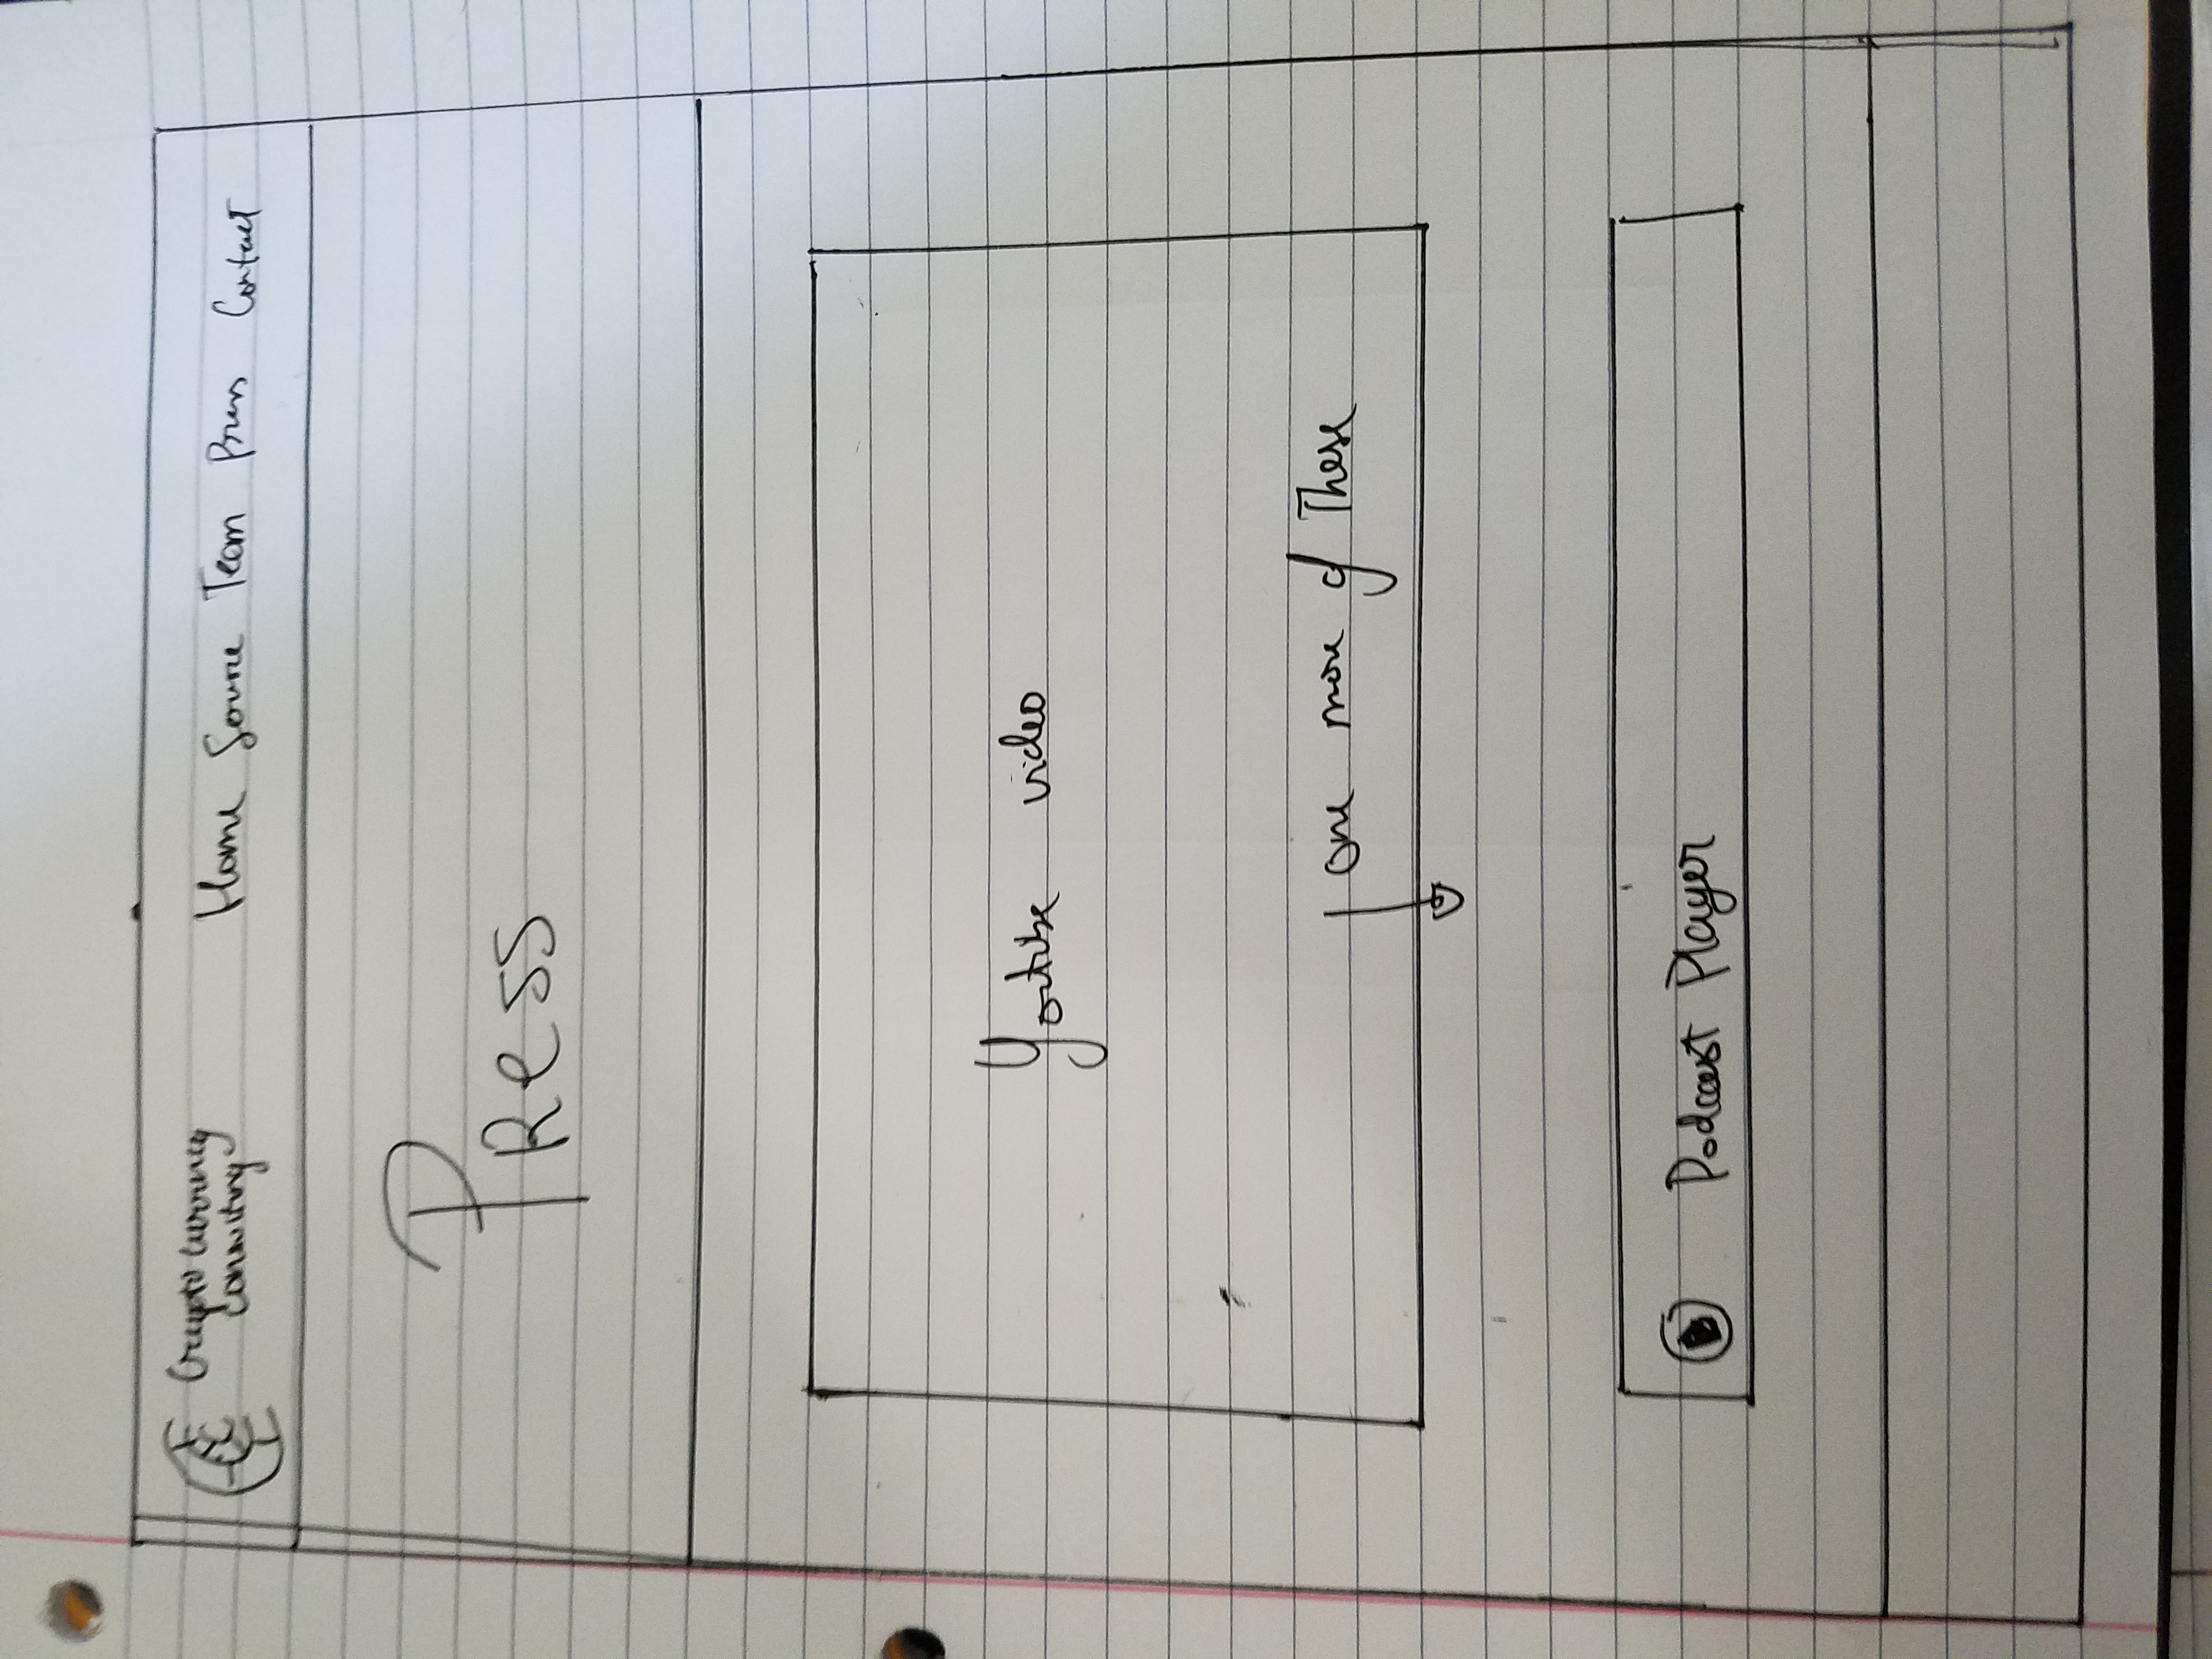 Cryptocurrency
Consulting
Home Source Team Press Contact
Press
Youtube video
one more of These
Podcast Player